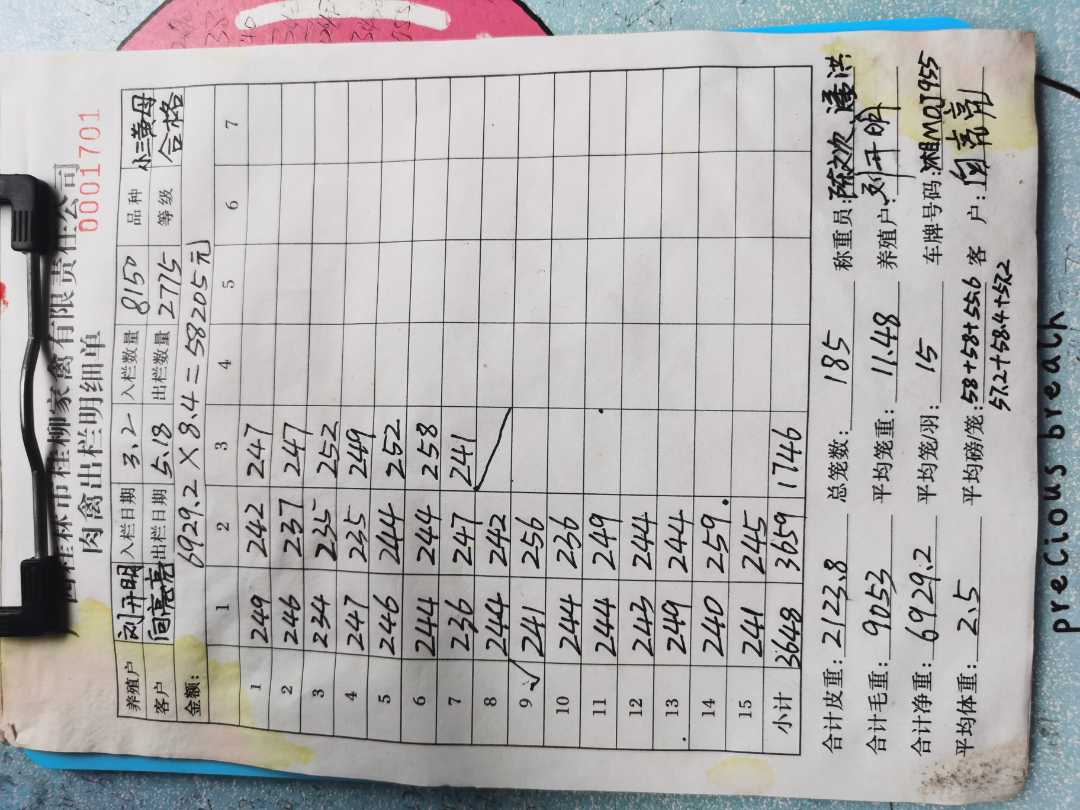 桂林市桂柳家禽有限责任公司
肉禽出栏明细单
0001701
养殖户 刘开明 入栏日期 3.2 入栏数量 8150 品种 黄母
客户 向亮亮 出栏日期 5.18 出栏数量 2775 等级 合格
金额: 6929.2×8.4=58205元
1 2 3 4 5 6 7
1 249 242 247
2 246 237 247
3 234 235 252
4 247 235 249
5 246 244 252
6 244 244 258
7 236 247 241
8 244 242
9 241 256
10 244 236
11 244 249
12 243 244
13 249 244
14 240 259
15 241 245
小计 3648 3659 1746
合计皮重: 2123.8 总笼数: 185 称重员:
合计毛重: 9053 平均笼重: 11.48 养殖户: 刘开明
合计净重: 6929.2 平均笼/羽: 15 车牌号码: 湘M0J955
平均体重: 2.5 平均磅/笼: 58+58+55.6 客户: 向亮亮
57.2+58.4+57.2
precious breath